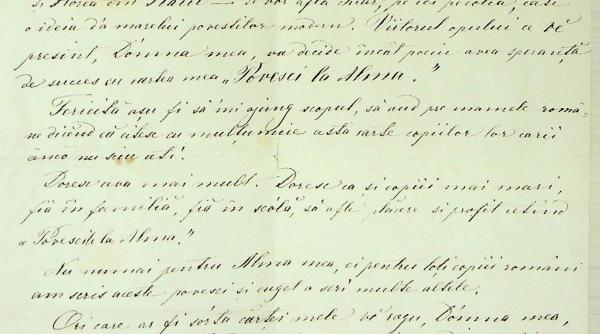 și Florea din Flăcii — și vor afla chiar, pe ici pe colea, câte
o ideia d'a marelui povestitor modern. Viitorul opului ce vĕ
presint, Dómna mea, va decide încât pociu avea speranță
de succes cu cartea mea „Povesci la Alma."
Fericită așu fi să'mi ajung scopul, să aud pre mamele româ=
ne dicênd că citesc cu mulțumire asta carte copiilor lor carii
ânco nu sciu ceti.
Doresc ava mai mult. Doresc ca și copiii mai mari,
fiă în familiă, fiă în scólă, să afle plăcere și profit cetind
a „Povescile la Alma."
Nu numai pentru Alma mea, ci pentru toti copiii români
am scris aceste povesci și cuget a scri multe altele.
Ori care ar fi sórta cărței mele vĕ rogu, Dómna mea,